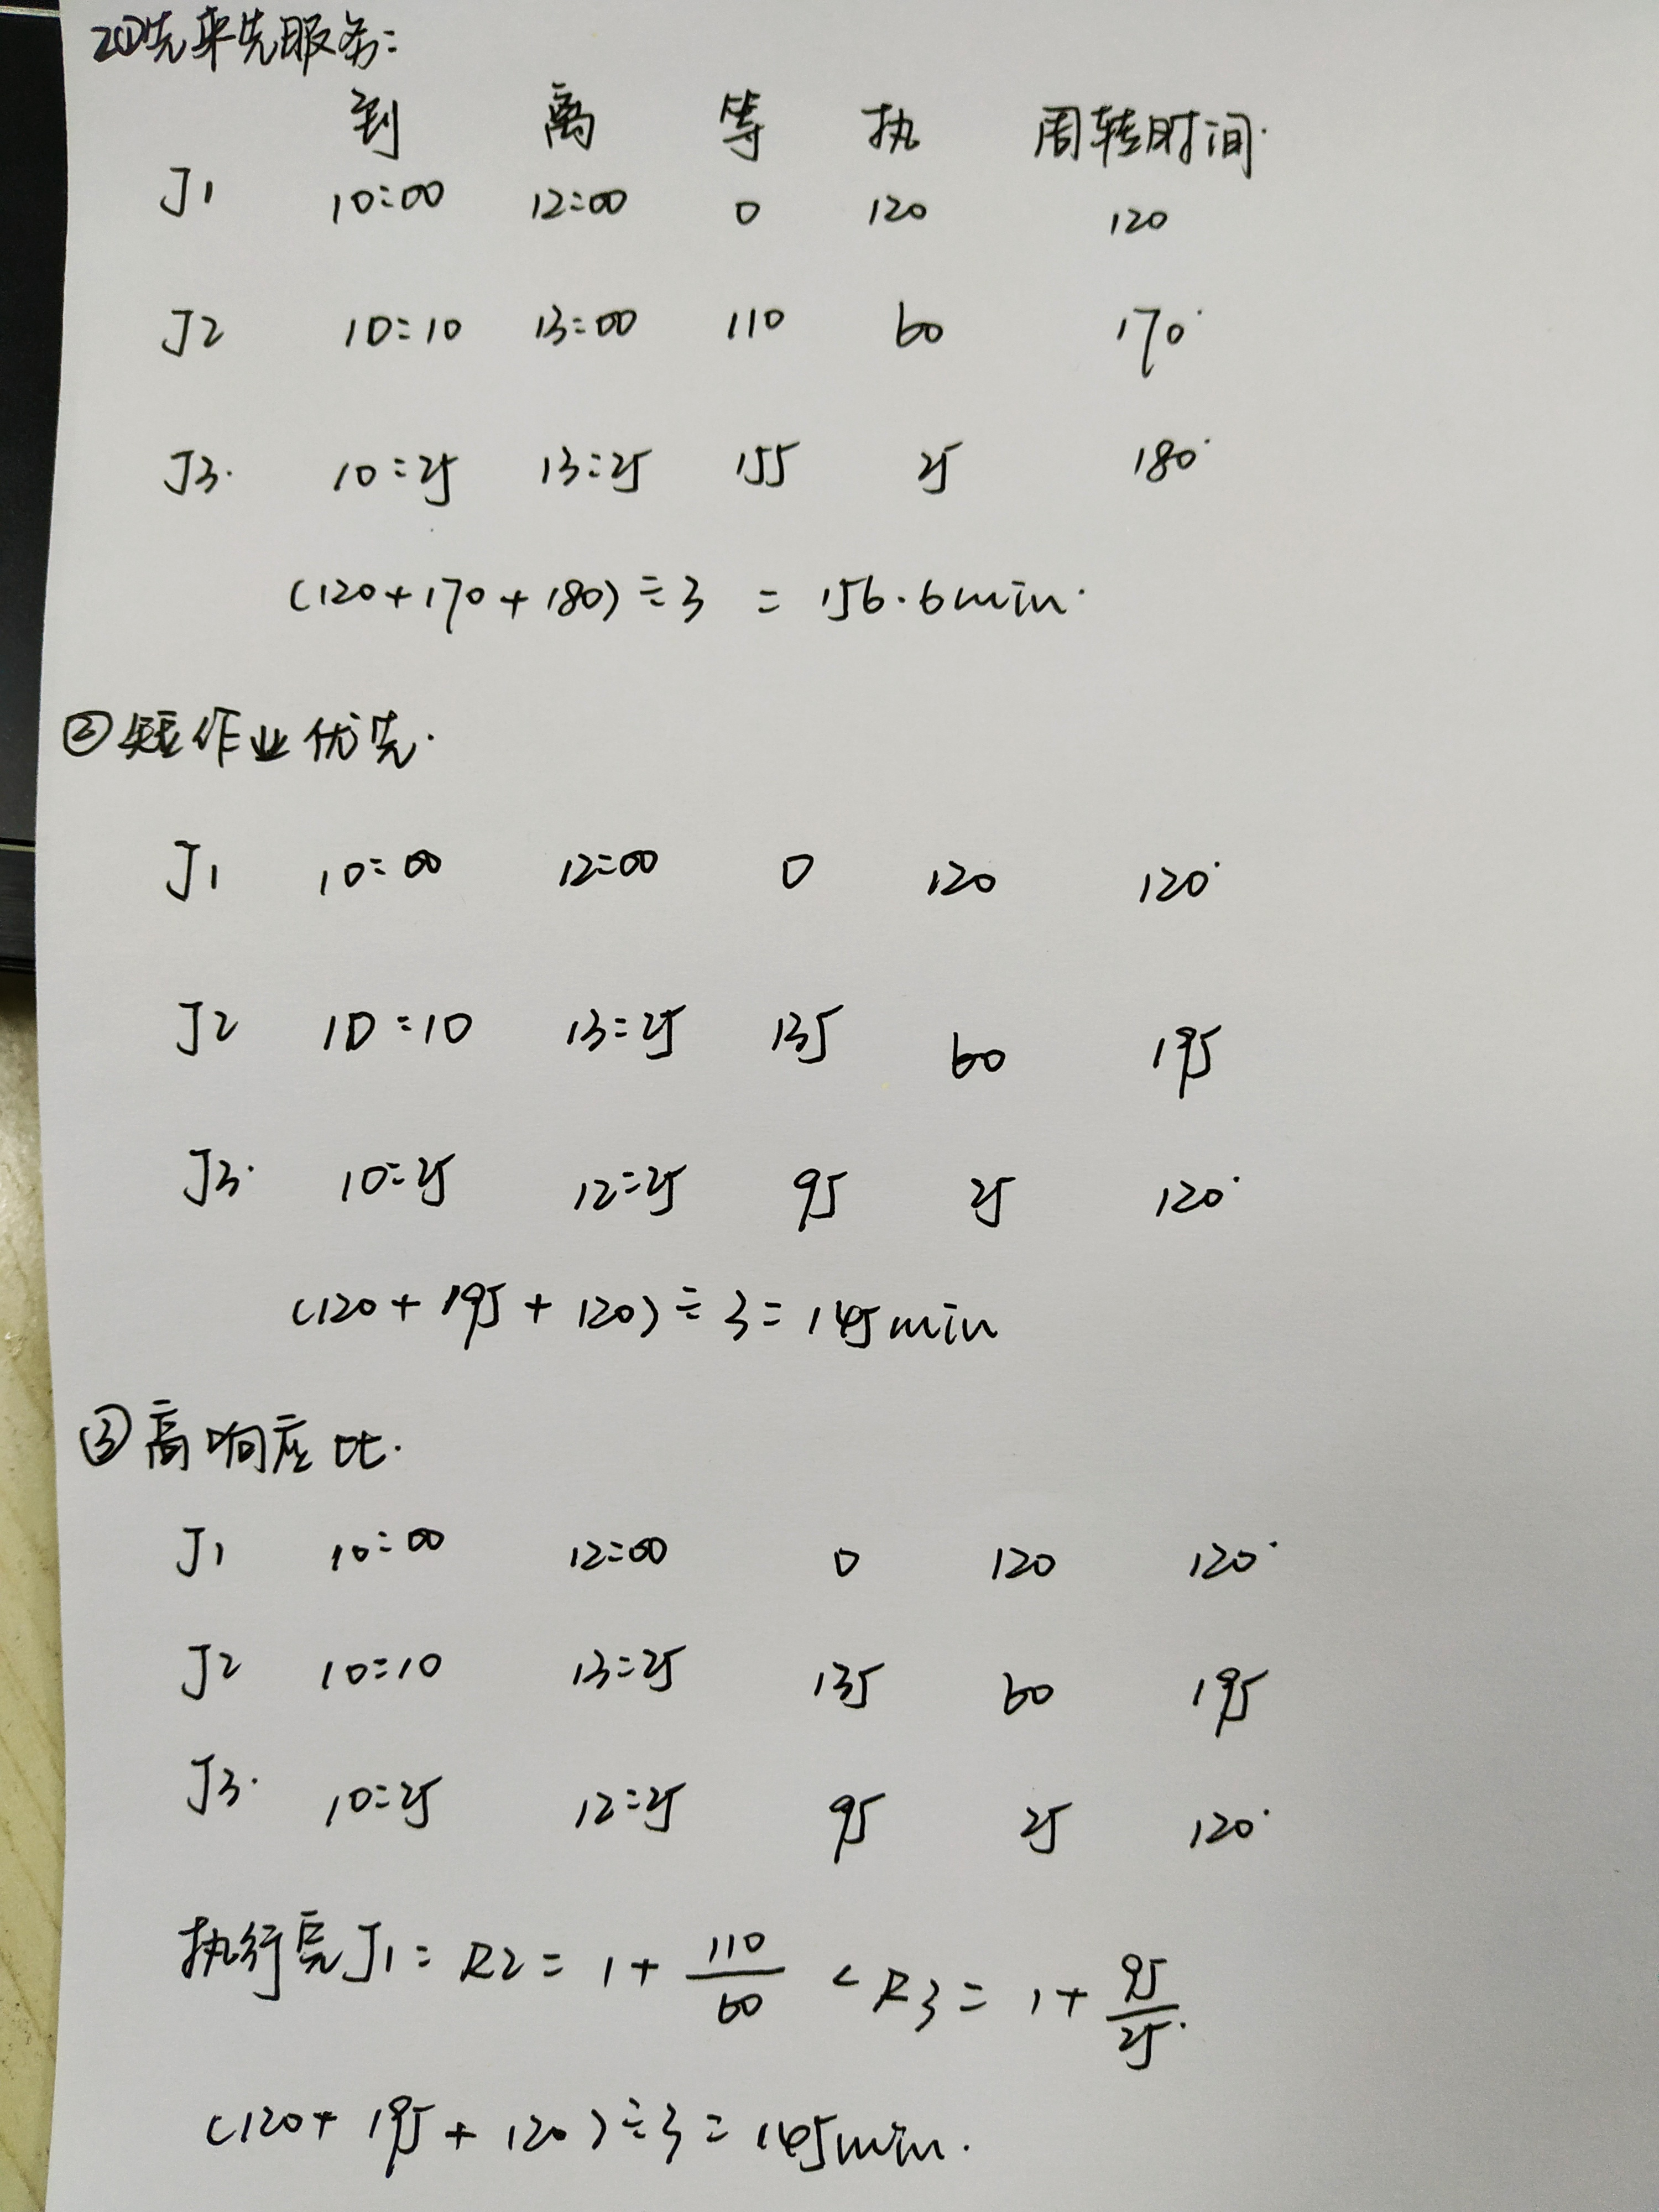 2①先来先服务:
到 离 等 执 周转时间.
J1 10:00 12:00 0 120 120
J2 10:10 13:00 110 60 170
J3. 10:25 13:25 155 25 180
(120+170+180)÷3 = 156.6min.
②短作业优先.
J1 10:00 12:00 0 120 120
J2 10:10 13:25 135 60 195
J3. 10:25 12:25 95 25 120
(120+195+120)÷3=145min
③高响应比.
J1 10:00 12:00 0 120 120
J2 10:10 13:25 135 60 195
J3. 10:25 12:25 95 25 120
执行完J1: R2 = 1+110/60 < R3 = 1+95/25.
(120+195+120)÷3=145min.